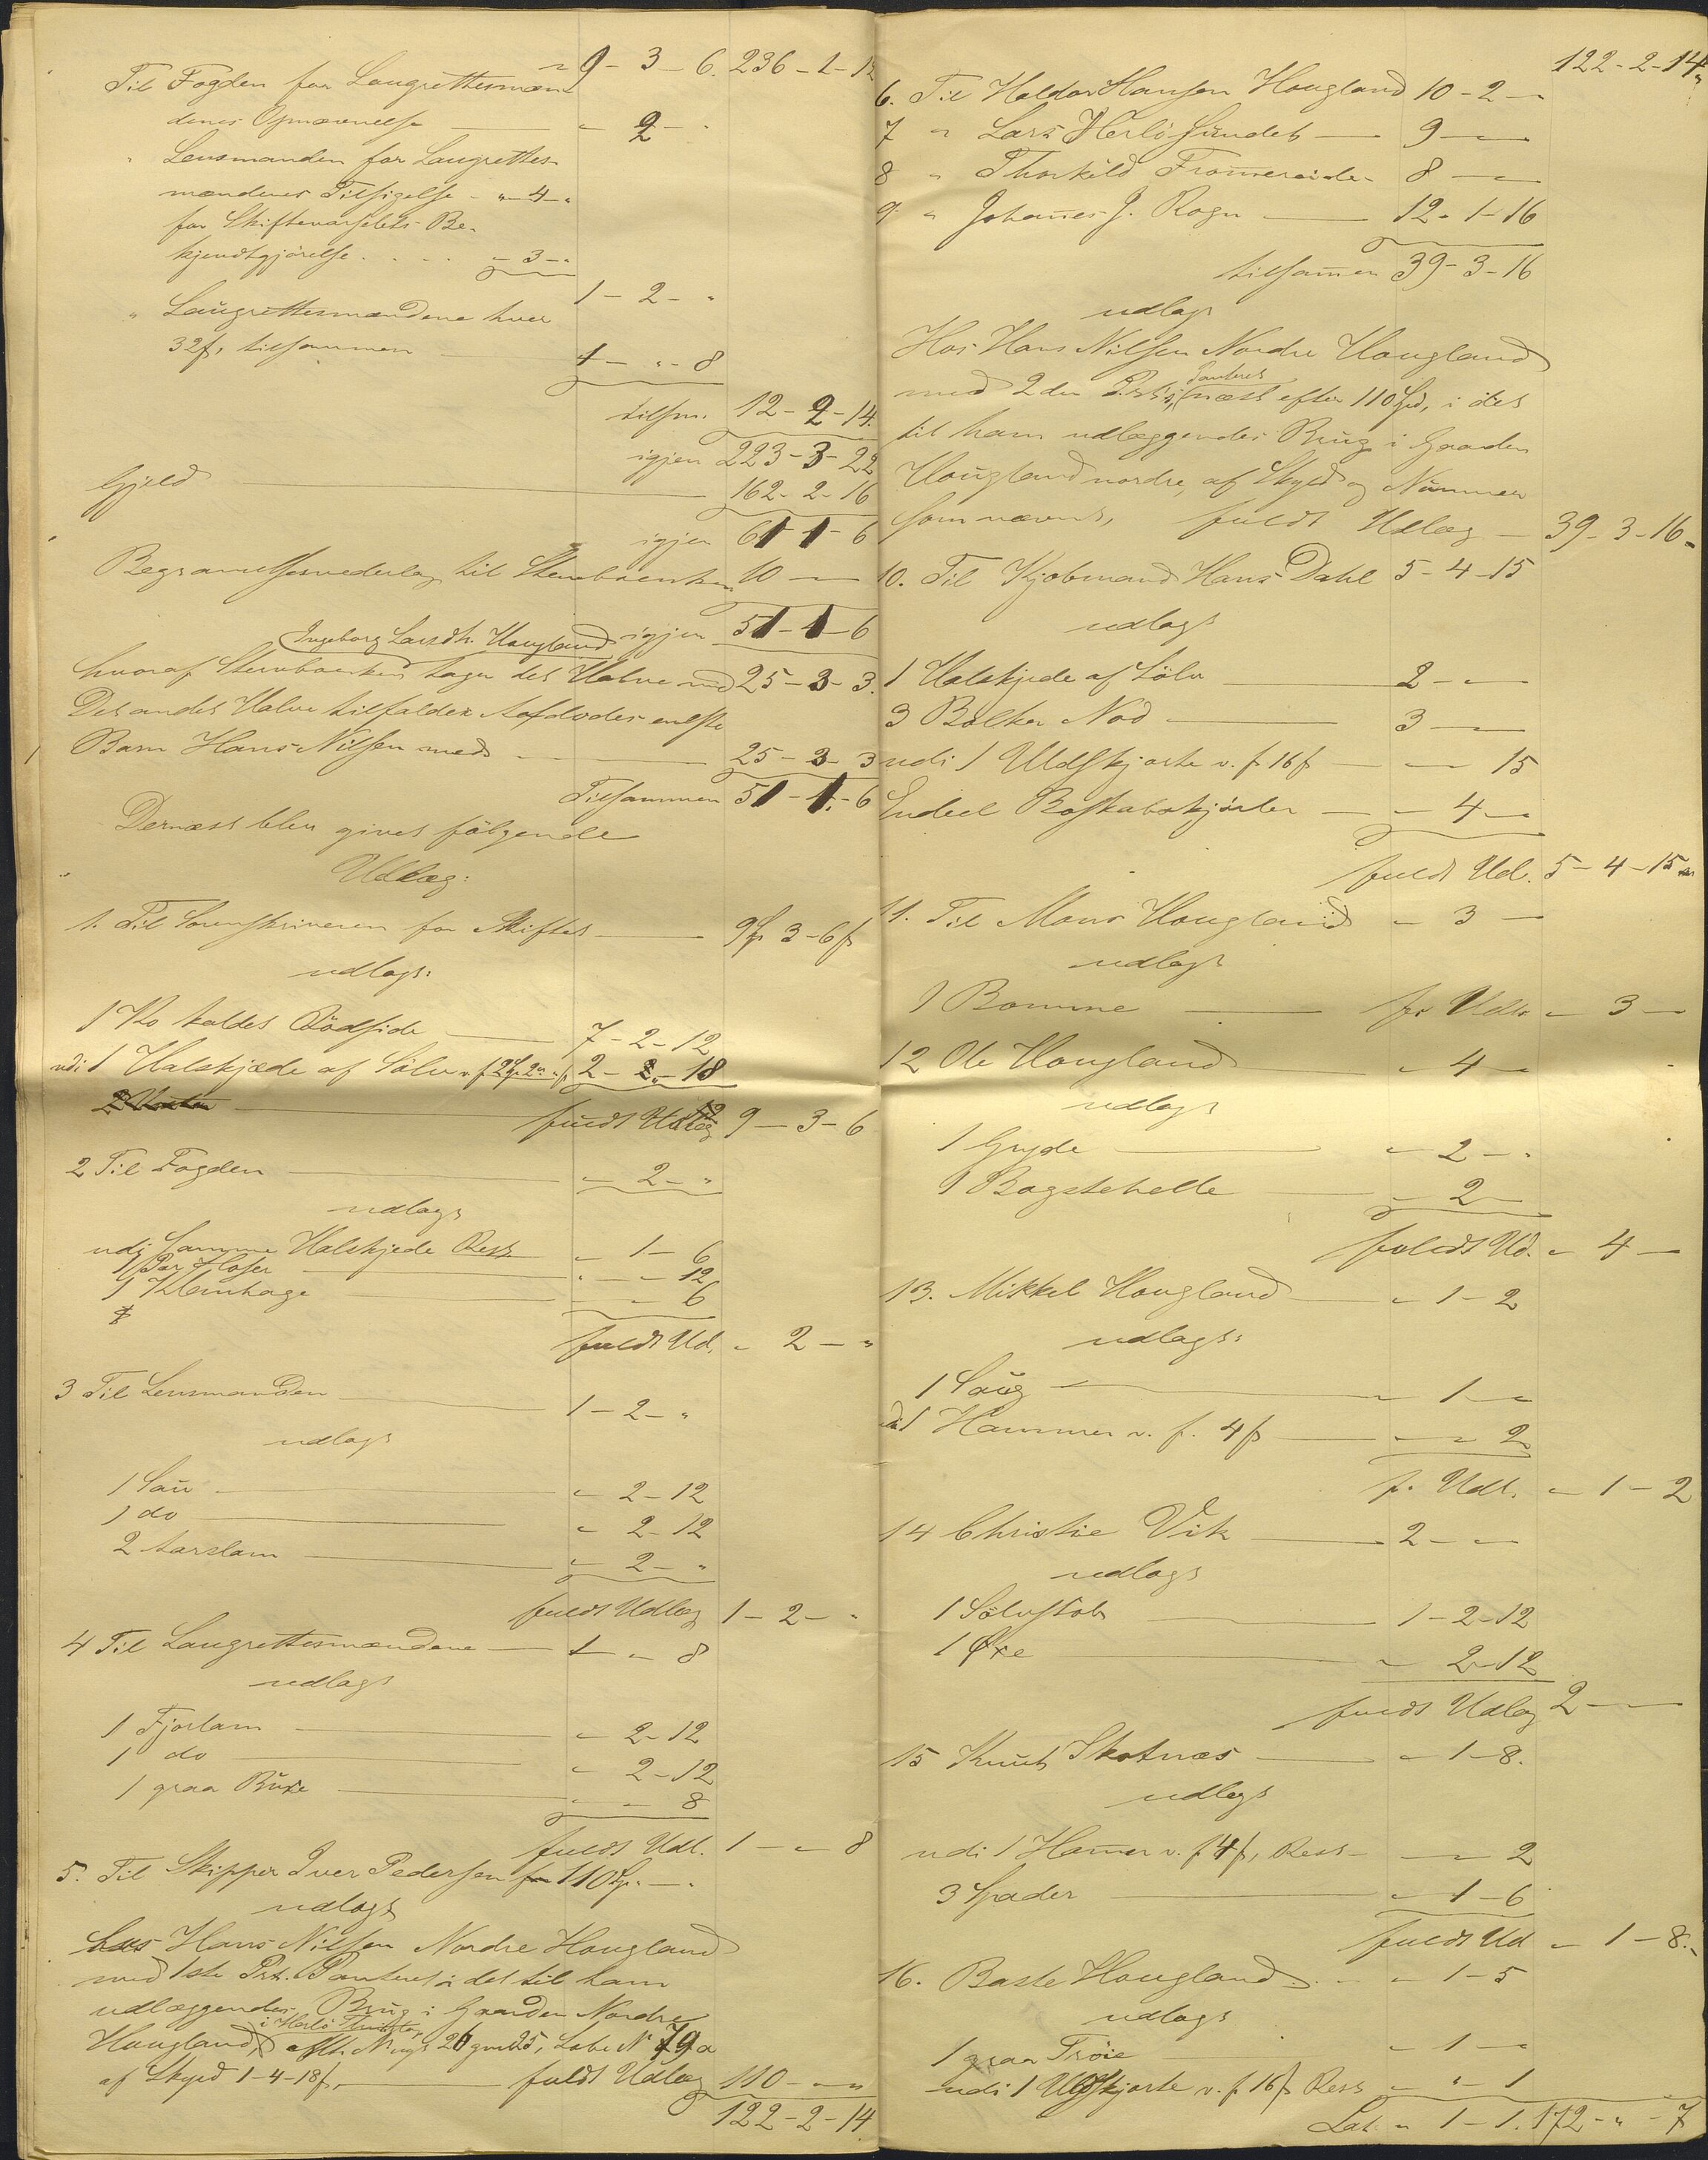 " 9 - 3 - 6. 236 - 1 - 12
Til Fogden for Laugrettesmæn
denes Opnævnelse — " 2 - "
" Lensmanden for Laugrettes-
mændenes Tilsigelse - " - 4 - "
for Skiftevarselets Be-
kjendtgjörelse . . . . " - 3 - "
1 - 2 - "
" Laugrettesmændene hver
32 ß, tilsammen 1 - " - 8
tilsm. 12 - 2 - 14.
igjen 223 - 3 - 22
Gjeld — 162 - 2 - 16
igjen 61 - 1 - 6
Begravelsesvederlag til Stervboenken 10 - "
igjen 51 - 1 - 6
Ingeborg Larsdtr. Hougland
hvoraf Stervboenken tager det Halve med 25 - 3 - 3.
Det andet Halve tilfalder Afdødes eneste
Barn Hans Nilsen med — 25 - 3 - 3
Tilsammen 51 - 1 - 6
Dernæst blev givet følgende
Udlæg:
1. Til Sorenskriveren for Skiftet — 9 Sp 3 - 6 ß
udlagt:
1 Ko kaldet Rödside — 7 - 2 - 12
udi 1 Halskjæde af Sölv v. f. 2 Sp 2 " ß 2 - " - 18
fuldt Udlæg 9 - 3 - 6
2 Til Fogden — " 2 - "
udlagt
udi samme Halskjede Rest " 1 - 6
1 Par Hoser — " - " - 12
1 Kleinhage — " - 6
fuldt Ud. " 2 - "
3 Til Lensmanden — 1 - 2 - "
udlagt
1 Sau — " 2 - 12
1 do — " 2 - 12
2 Aarslam — " 2 - "
fuldt Udlæg 1 - 2 - "
4 Til Laugrettesmændene — 1 - " - 8
udlagt
1 Fjorlam — " 2 - 12
1 do — " 2 - 12
1 graa Buxe — " - " 8
fuldt Udl. 1 - " - 8
5. Til Skipper Iver Pedersen 110 Sp. - "
udlagt
hos Hans Nilsen Nordre Hougland
med 1ste Prt. Panteret i det til ham
udlæggendes Brug i Gaarden Nordre
i Herlö
Hougland, Mt. N. nyt 26 gml 25, Löbe N 79 a
af Skyld 1 - 4 - 18 ß, — fuldt Udlæg 110 - " - "
122 - 2 - 14.
122 - 2 - 14 "
6. Til Haldor Hansen Hougland 10 - 2 - "
7 " Lars Herlösundet — 9 - "
8 " Thorkild Frommereide - 8 - "
9. " Johannes J. Rogn — 12 - 1 - 16
tilsammen 39 - 3 - 16
udlagt
Hos Hans Nilsen Nordre Hougland
Panteret
med 2den Prt. næst efter 110 Spd, i det
til ham udlæggendes Brug i Gaarden
Hougland nordre, af Skyld og Nummer
som nævnt, fuldt Udlæg — 39 - 3 - 16 "
10. Til Kjøbmand Hans Dahl 5 - 4 - 15
udlagt
1 Halskjede af Sölv — 2 - "
3 Bolker Nod — 3 - "
udi 1 Uldskjorte v. f. 16 ß — " - 15
Endeel Boskabskjörler — " 4 - "
fuldt Udl. 5 - 4 - 15 "
11. Til Mons Hougland " 3 -
udlagt
1 Bomme — fr Udlæ " 3 -
12 Ole Hougland " 4 - "
udlagt
1 Gryde — " 2 - "
1 Bagstehelle " 2 -
fuldt Ud. " 4 -
13. Mikkel Hougland — " 1 - 2
udlagt:
1 Saug — " 1 - "
udi 1 Hammer v. f. 4 ß — " - " 2
f. Udl. " 1 - 2
14 Christie Vik — 2 - "
udlagt
1 Sölvstob — 1 - 2 - 12
1 Øxe — " 2 - 12
fuldt Udlæg 2 - "
15 Knut Skotnæs — " 1 - 8.
udlagt
udi 1 Hammer v. f 4 ß, Rest - " - " 2
3 Spader — " 1 - 6
fuldt Ud " 1 - 8. "
16. Baste Hougland — " 1 - 5
udlagt
1 graa Tröie — " 1 - "
udi 1 Uldskjorte v. f. 16 ß Rest " - " - 1
Lat. " 1 - 1. 172 - " - 7